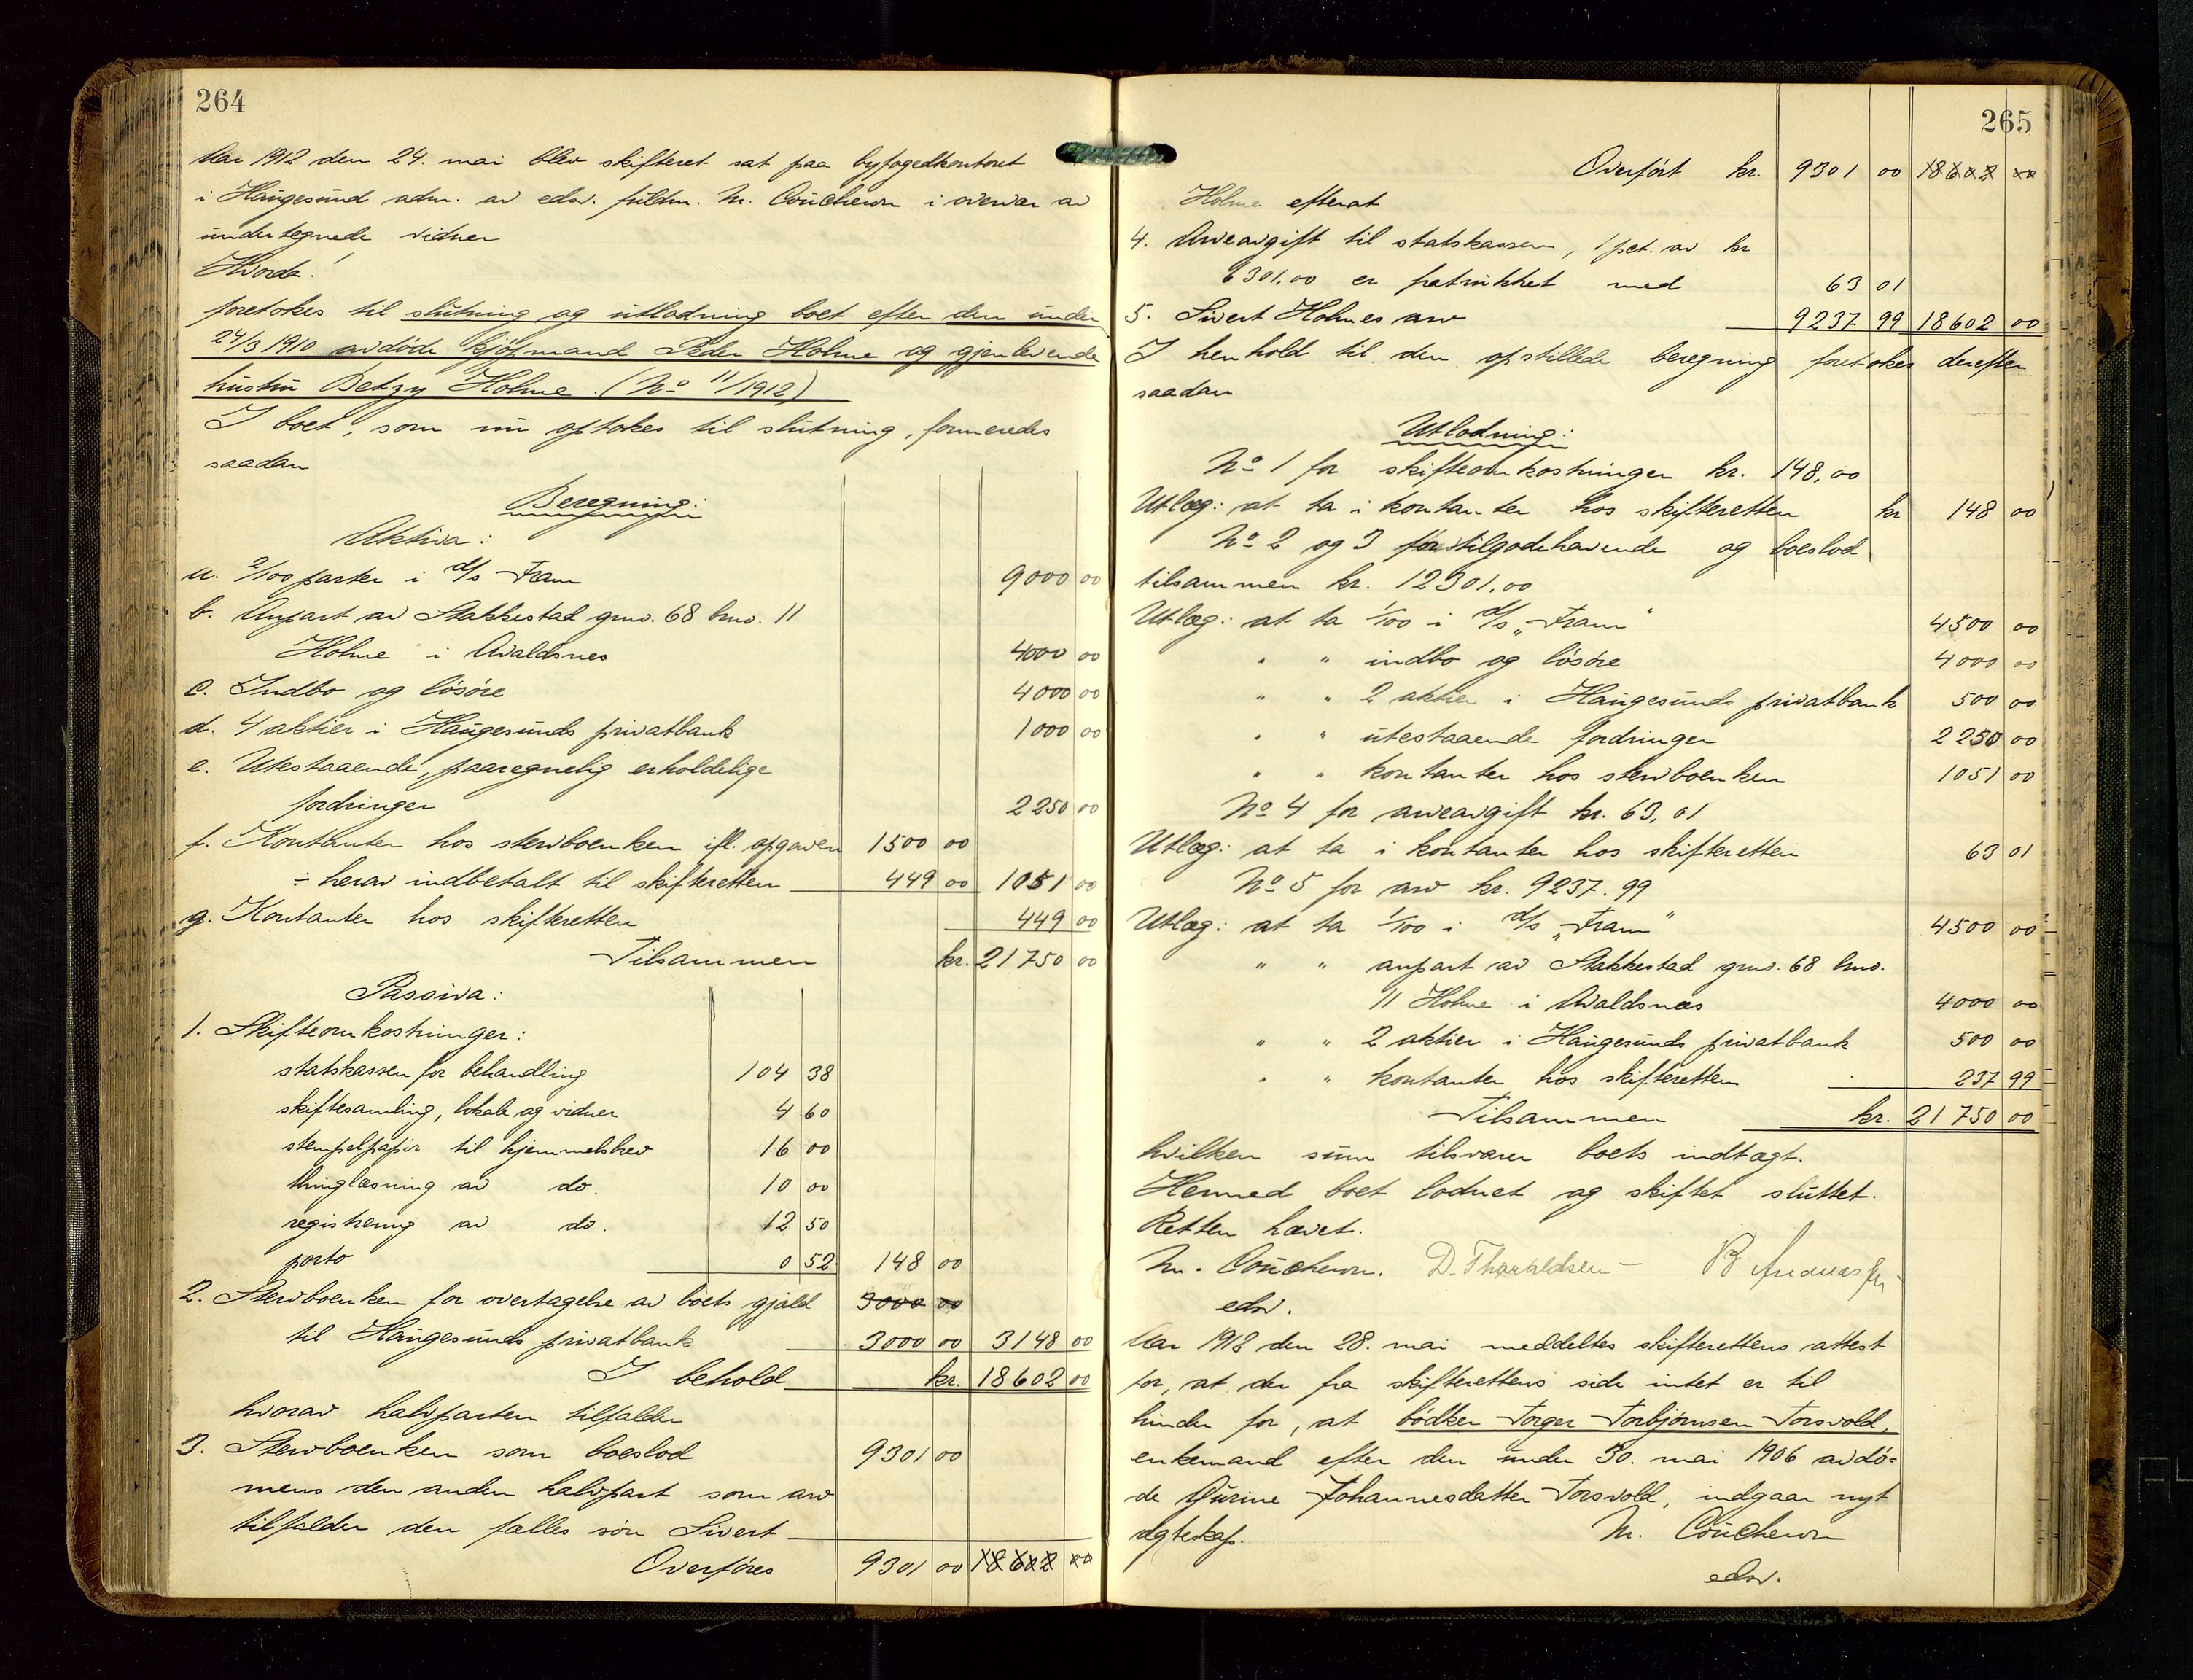 264
Aar 1912 den 24. mai blev skifteret sat paa byfogedkontoret
i Haugesund adm. av edsv. fuldm. M. Coucheron i overvær av
undertegnede vidner
Hvorda!
foretokes til slutning og utlodning boet efter den under
24/3 1910 avdöde kjöpmand Peder Holme og gjenlevende
hustru Betzy Holme. (No 11/1912)
I boet, som nu optokes til slutning, formeredes
saadan
Beregning:
Aktiva:
a. 2/100 parter i d/s Fram 9000 00
b. Anpart av Stakkestad gno. 68 bno. 11
Holme i Avaldsnes 4000 00
c. Indbo og lösöre 4000 00
d. 4 aktier i Haugesunds privatbank 1000 00
e. Utestaaende, paaregnelig erholdelige
fordringer 2250 00
f. Kontanter hos stervboenken ifl. opgaven 1500 00
÷ herav indbetalt til skifteretten 449 00 1051 00
g. Kontanter hos skifteretten 449 00
Tilsammen kr. 21750 00
Passiva:
1. Skifteomkostninger:
statskassen for behandling 104 38
skiftesamling, lokale og vidner 4 60
stempelpapir til hjemmelsbrev 16 00
thinglæsning av do. 10 00
registrering av do. 12 50
porto 0 52 148 00
2. Stervboenken for overtagelse av boets gjæld 3000 00
til Haugesunds privatbank 3000 00 3148 00
I behold kr. 18602 00
hvorav halvparten tilfalder
3. Stervboenken som boeslod 9301 00
mens den anden halvpart som arv
tilfalder den fælles sön Sivert
Overföres 9301 00 18602 00
265
Overfört kr. 9301 00 18602 00
Holme efterat
4. Arveavgift til statskassen, 1 pct. av kr
6301.00 er fratrukket med 63 01
5. Sivert Holmes arv 9237 99 18602 00
I henhold til den opstillede beregning foretokes derefter
saadan
Utlodning:
No 1 for skifteomkostninger kr. 148,00
Utlæg: at ta i kontanter hos skifteretten kr 148 00
No 2 og 3 for tilgodehavende og boeslod
tilsammen kr. 12301.00
Utlæg: at ta 1/100 i d/s „Fram" 4500 00
" " indbo og lösöre 4000 00
" " 2 aktier i Haugesunds privatbank 500 00
" " utestaaende fordringer 2250 00
" " kontanter hos stervboenken 1051 00
No 4 for arveavgift kr. 63,01
Utlæg: at ta i kontanter hos skifteretten 63 01
No 5 for arv kr. 9237.99
Utlæg: at ta 1/100 i d/s „Fram" 4500 00
" " anpart av Stakkestad gno. 68 bno.
11 Holme i Avaldsnes 4000 00
" " 2 aktier i Haugesunds privatbank 500 00
" " kontanter hos skifteretten 237 99
Tilsammen kr. 21750 00
hvilken sum tilsvarer boets indtægt.
Hermed boet lodnet og skiftet sluttet.
Retten hævet.
M. Coucheron. D. Tharaldsen B Andreassen
edsv.
Aar 1912 den 28. mai meddeltes skifterettens attest
for, at der fra skifterettens side intet er til
hinder for, at bödker Torger Torbjörnsen Torsvold,
enkemand efter den under 30. mai 1906 avdö-
de Gurine Johannesdatter Torsvold, indgaar nyt
ægteskap. M. Coucheron
edsv.